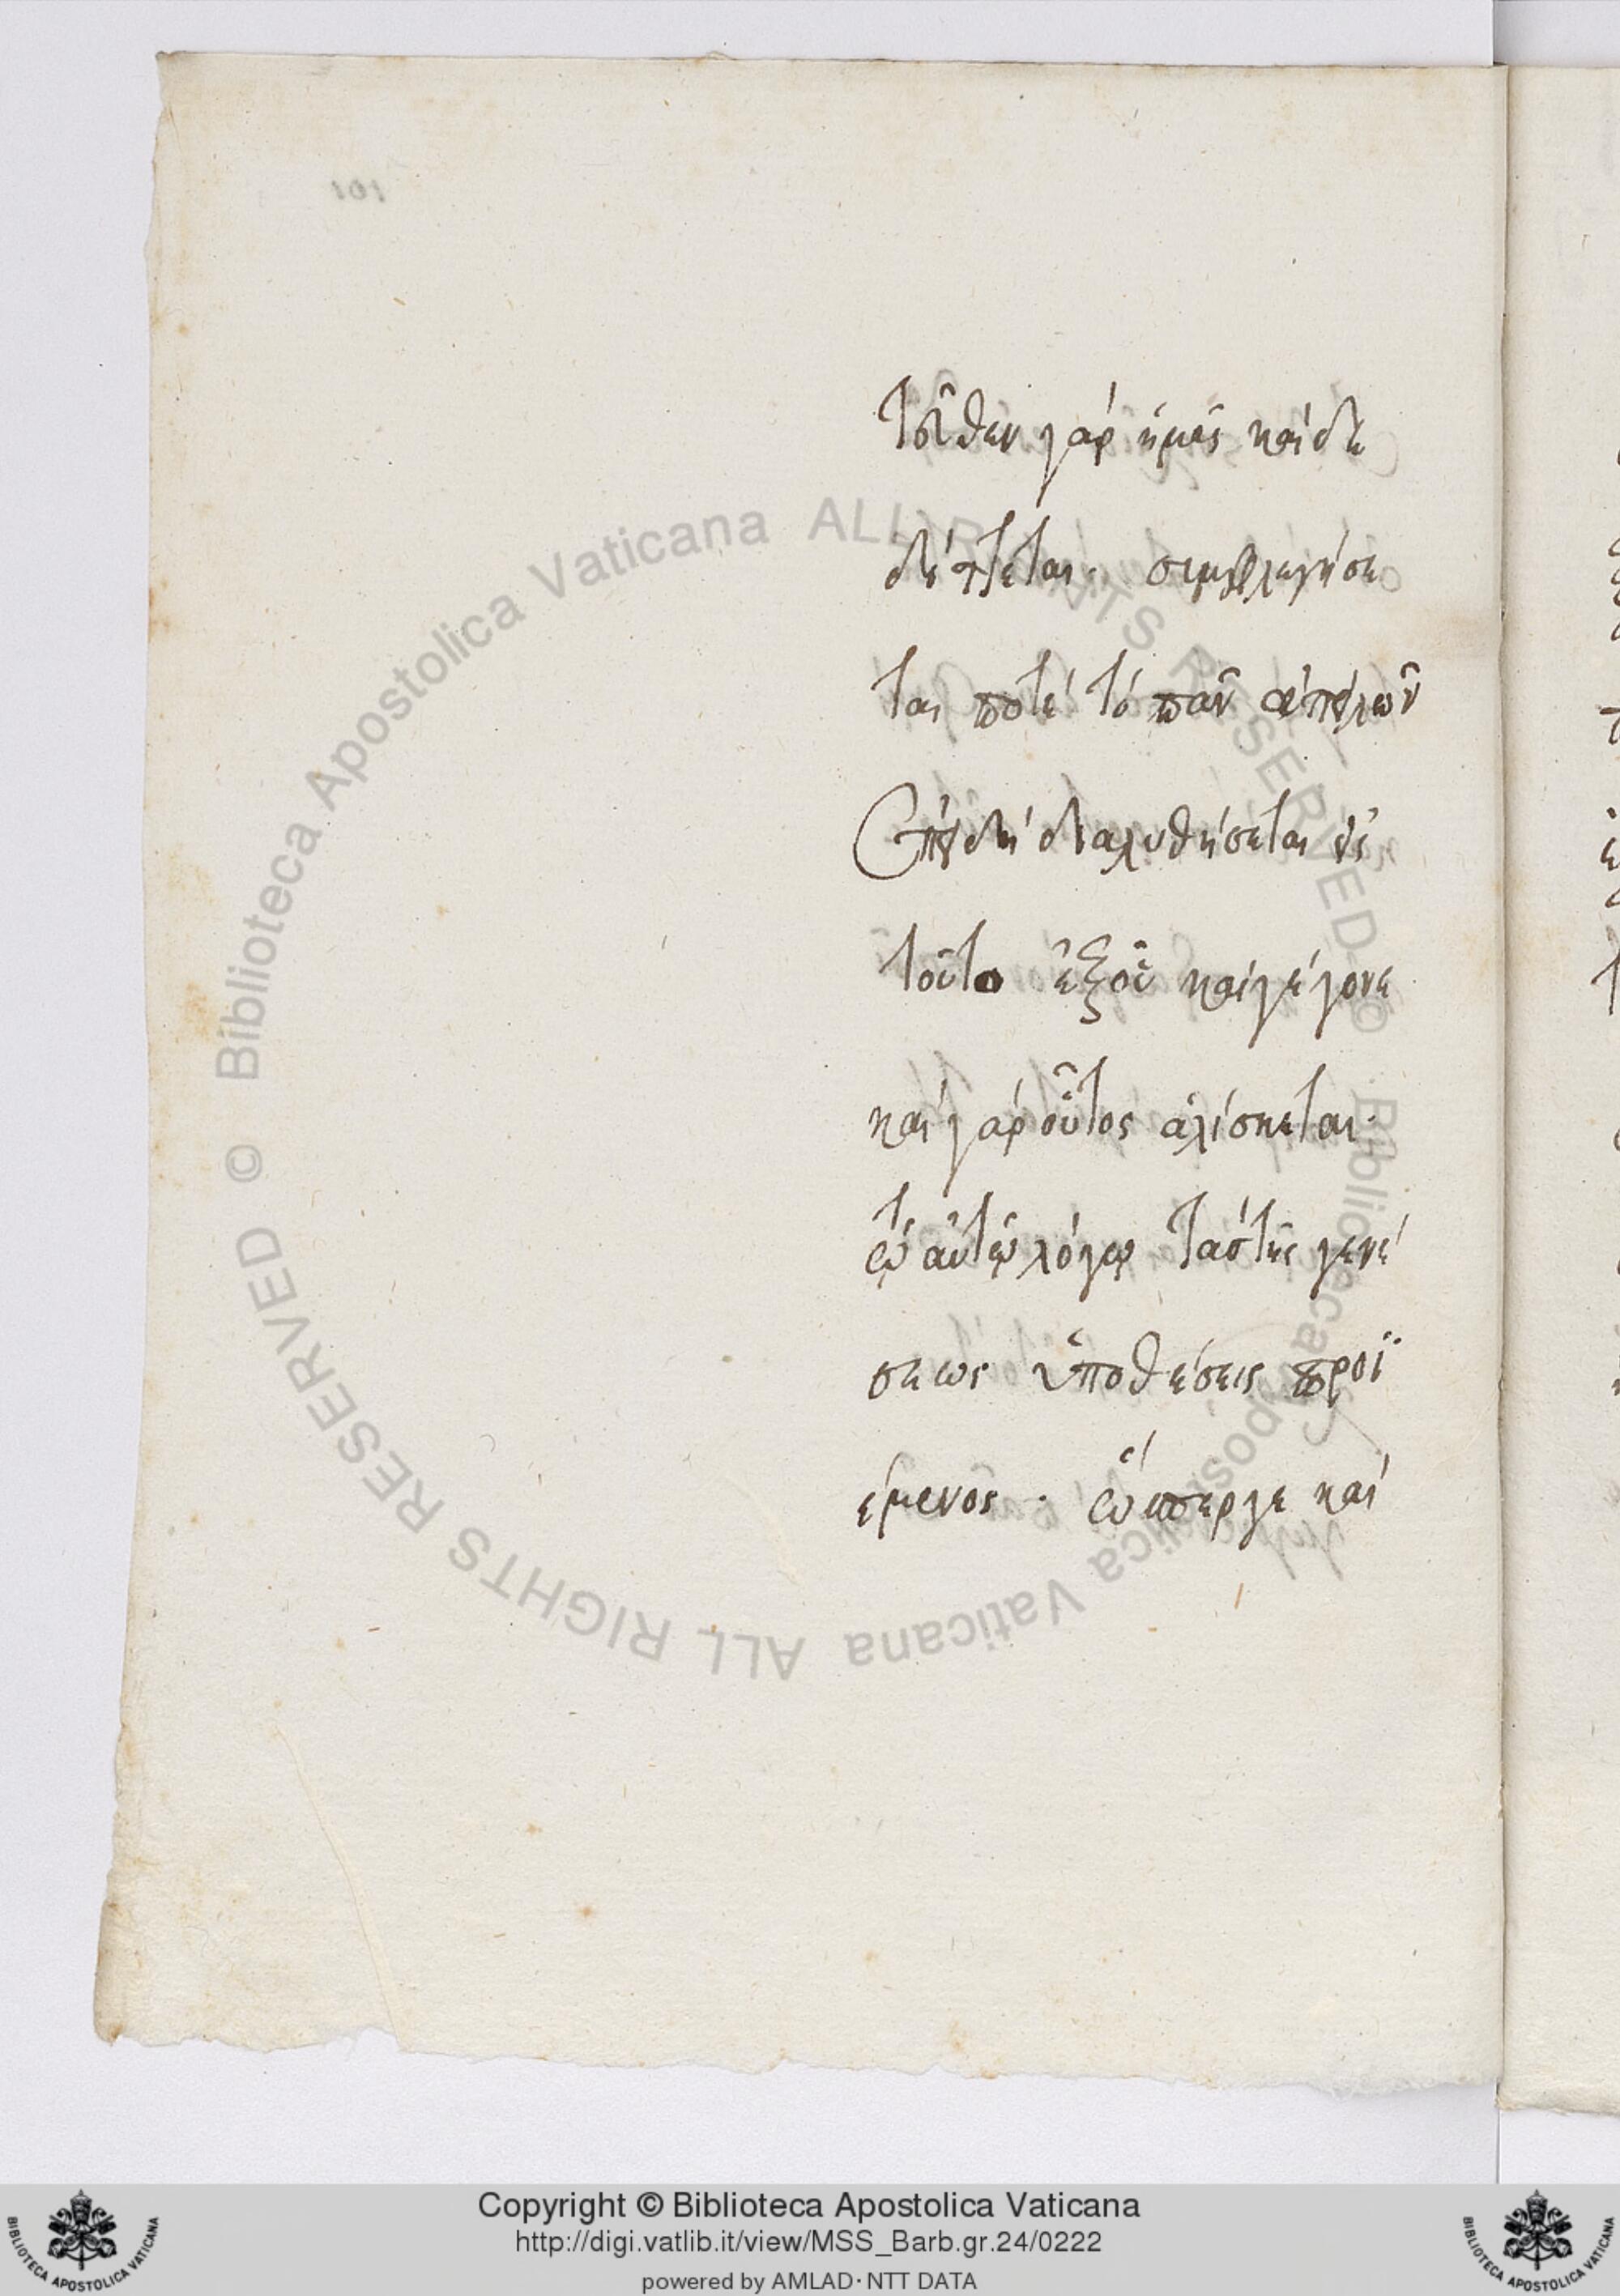 101
τοῦθεν γάρ ἡμᾶς καὶ δὲ
δήττεται. συμφλεγήσε
ται ποτὲ τὸ πᾶν ἀπειλῶν
ἐπειδὴ διαλυθήσεται εἰς
τοῦτο ἐξοῦ καὶ γέγονε
καὶ γάρ οὗτος ἁλίσκεται.
τῷ αὐτῷ λόγῳ τὰς τῆς γενέ
σεως ὑποθέσεις προϊ
έμενος. ὥσπερ γε καὶ
© Biblioteca Apostolica Vaticana ALL RIGHTS RESERVED
© Biblioteca Apostolica Vaticana ALL RIGHTS RESERVED
Copyright © Biblioteca Apostolica Vaticana
http://digi.vatlib.it/view/MSS_Barb.gr.24/0222
powered by AMLAD·NTT DATA
BIBLIOTECA APOSTOLICA VATICANA
BIBLIOTECA APOSTOLICA VATICANA